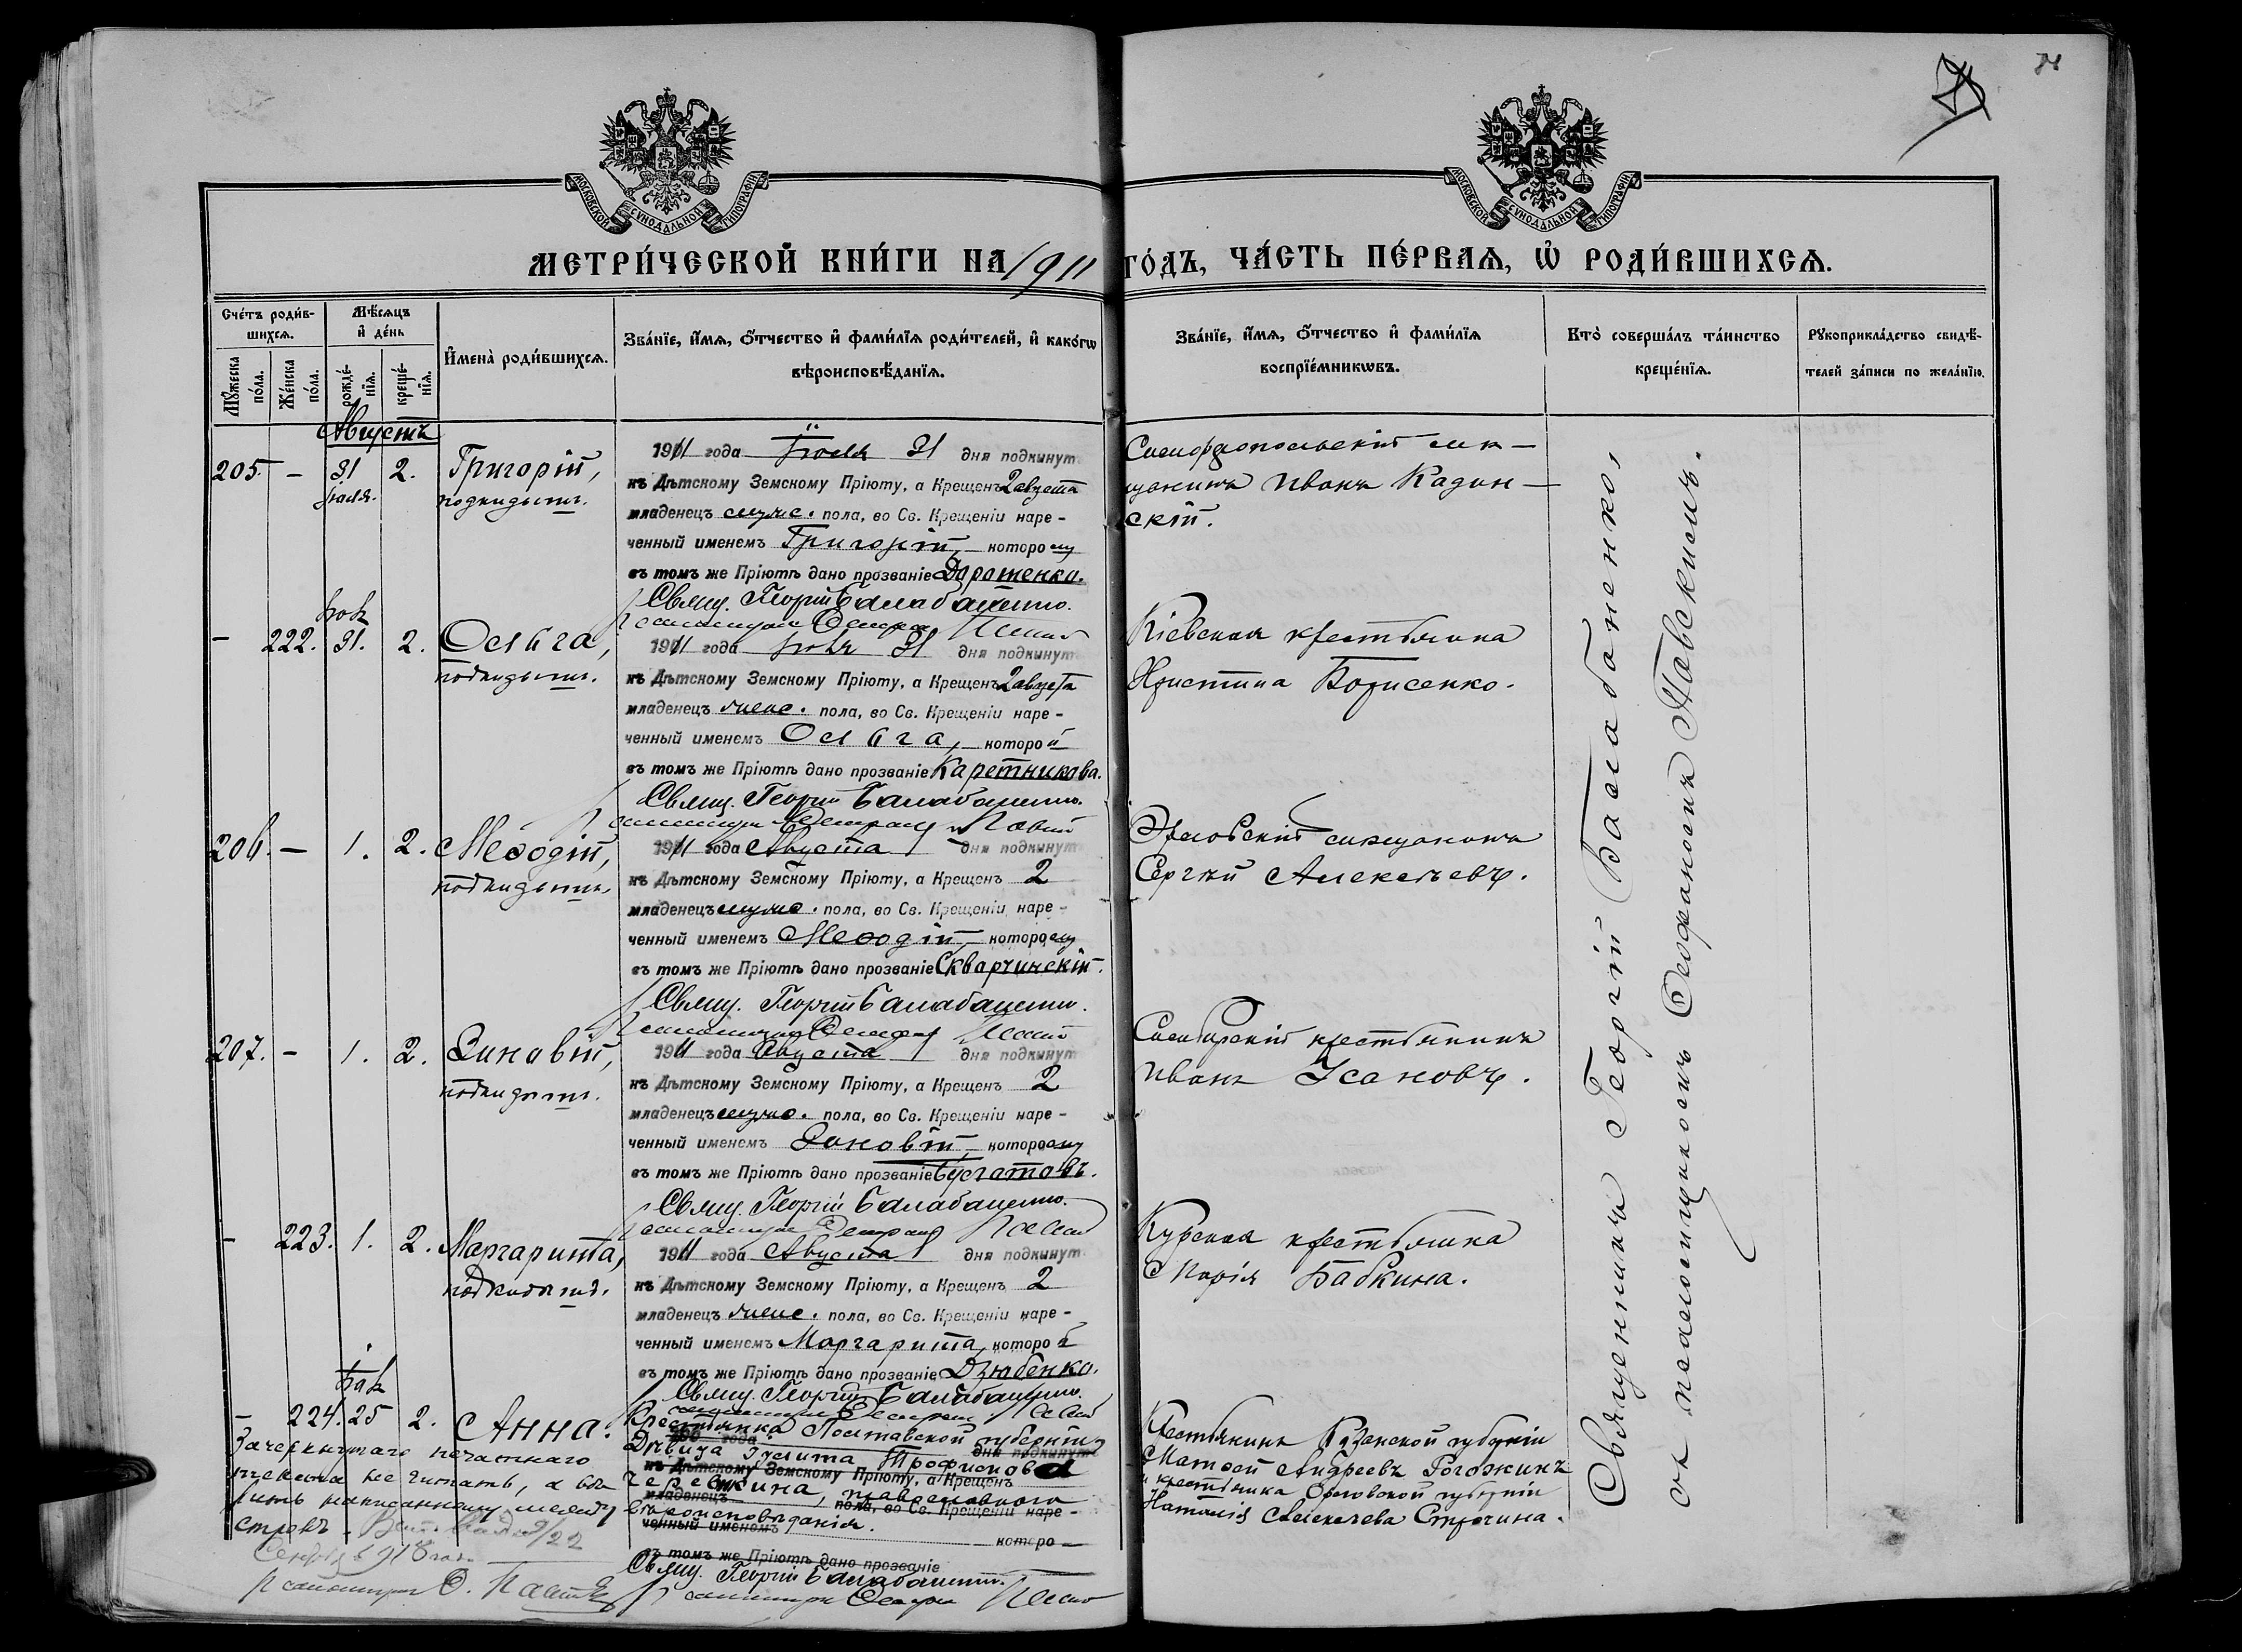 МОСКОВСКОЙ СѴНОДАЛЬНОЙ ТИПОГРАФІИ
МОСКОВСКОЙ СѴНОДАЛЬНОЙ ТИПОГРАФІИ
МЕТРИ́ЧЕСКОЙ КНИ́ГИ НА 1911 ГО́ДЪ, ЧА́СТЬ ПЕ́РВАѦ, Ѡ҆ РОДИ́ВШИХСѦ.
Сче́тъ роди́в-
шихсѧ.
Мꙋ́жеска по́ла.
Же́нска по́ла.
Мѣ́сѧцъ
и҆ де́нь
рожде́-нїѧ.
креще́-нїѧ.
И҆мена̀ роди́вшихсѧ.
Зва́нїе, и҆́мѧ, ѻ҆́тчество и҆ фами́лїѧ роди́телей, и҆ како́гѡ
вѣроисповѣ́данїѧ.
Зва́нїе, и҆́мѧ, ѻ҆́тчество и҆ фами́лїѧ
воспрїе́мникѡвъ.
Кто̀ соверша́лъ та́инство
креще́нїѧ.
Рꙋкоприкла́дство свидѣ́-
телей за́писи по жела́нїю.
Августъ
205. – 31 Іюля. 2. Григорій,
подкидышъ.
1911 года Іюля 31 дня подкинут
къ Дѣтскому Земскому Пріюту, а Крещенъ 2 августа
младенецъ муж. пола, во Св. Крещеніи наре-
ченный именемъ Григорій, которому
въ томъ же Пріютѣ дано прозваніе Дорошенко.
Свящ. Георгій Балабаненко.
Симферопольскій мѣ-
щанинъ Иванъ Кадин-
скій.
– 222. 31. 2. Ольга,
подкидышъ.
1911 года Іюля 31 дня подкинут
къ Дѣтскому Земскому Пріюту, а Крещенъ 2 августа
младенецъ жен. пола, во Св. Крещеніи наре-
ченный именемъ Ольга, которой
въ томъ же Пріютѣ дано прозваніе Каретникова.
Свящ. Георгій Балабаненко.
Кіевская крестьянка
Христина Борисенко.
206. – 1. 2. Меѳодій,
подкидышъ.
1911 года Августа 1 дня подкинут
къ Дѣтскому Земскому Пріюту, а Крещенъ 2
младенецъ муж. пола, во Св. Крещеніи наре-
ченный именемъ Меѳодій, которому
въ томъ же Пріютѣ дано прозваніе Скварчинскій.
Свящ. Георгій Балабаненко.
мѣщанинъ
Сергѣй Алексѣевъ.
207. – 1. 2. Зиновій,
подкидышъ.
1911 года Августа 1 дня подкинут
къ Дѣтскому Земскому Пріюту, а Крещенъ 2
младенецъ муж. пола, во Св. Крещеніи наре-
ченный именемъ Зиновій, которому
въ томъ же Пріютѣ дано прозваніе
Свящ. Георгій Балабаненко.
Симбирскій крестьянинъ
Иванъ Усановъ.
– 223. 1. 2. Маргарита,
подкидышъ.
1911 года Августа 1 дня подкинут
къ Дѣтскому Земскому Пріюту, а Крещенъ 2
младенецъ жен. пола, во Св. Крещеніи наре-
ченный именемъ Маргарита, которой
въ томъ же Пріютѣ дано прозваніе Дзюбенко.
Свящ. Георгій Балабаненко.
Курская крестьянка
Марія Бабкина.
– 224. 25 2. Анна.
Крестьянка Полтавской губерніи
Дѣвица Трофимова
православного
вѣроисповѣданія.
дня подкинут
къ Дѣтскому Земскому Пріюту, а Крещенъ
младенецъ пола, во Св. Крещеніи наре-
ченный именемъ которо
въ томъ же Пріютѣ дано прозваніе
Свящ. Георгій Балабаненко.
Крестьянинъ Рязанской губерніи
Матѳей Андреевъ Рогожинъ
и крестьянка Орловской губерніи
Наталія Алексѣева
Зачеркнутаго печатнаго
не читать, а
написанному между
строкъ.
Священникъ Георгій Балабаненко,
съ псаломщикомъ Павскимъ.